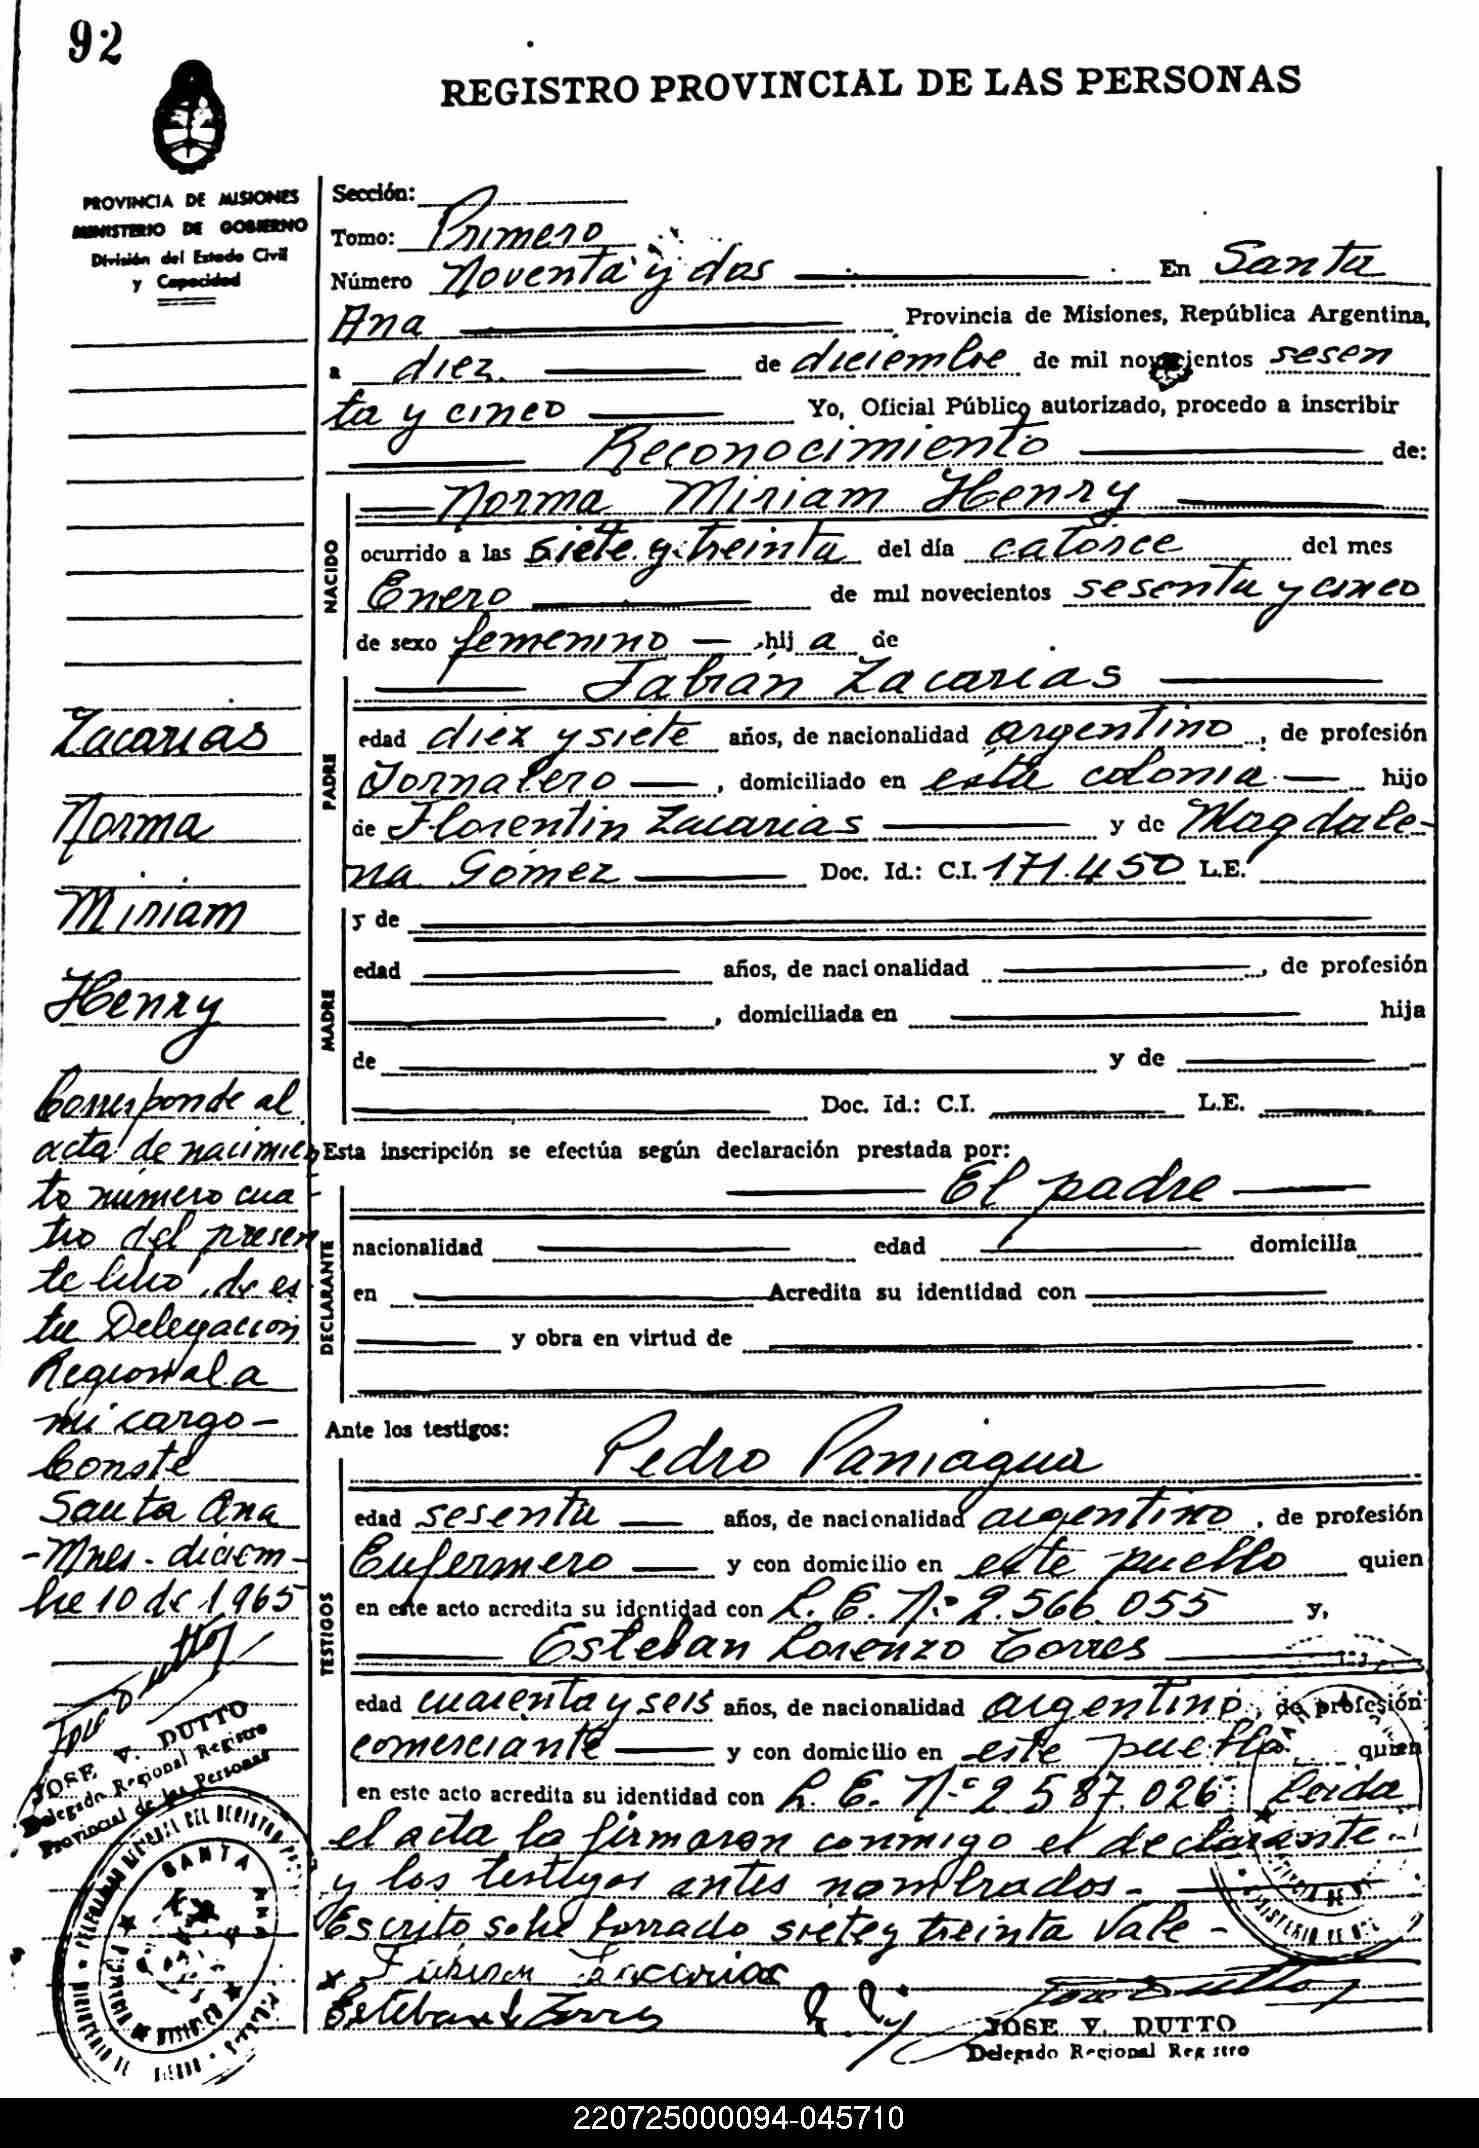 92
REGISTRO PROVINCIAL DE LAS PERSONAS
PROVINCIA DE MISIONES
MINISTERIO DE GOBIERNO
División del Estado Civil
y Capacidad
Sección:
Tomo: Primero
Número Noventa y dos En Santa
Ana Provincia de Misiones, República Argentina,
a diez de diciembre de mil novecientos sesen
ta y cinco Yo, Oficial Público autorizado, procedo a inscribir
Reconocimiento de:
NACIDO
Norma Miriam Henry
ocurrido a las siete y treinta del día catorce del mes
Enero de mil novecientos sesenta y cinco
de sexo femenino — hij a de
PADRE
Fabián Zacarias
edad diez y siete años, de nacionalidad argentino, de profesión
Jornalero —, domiciliado en esta colonia — hijo
de Florentin Zacarias y de Magdale-
na Gómez Doc. Id.: C.I. 171.450 L.E.
MADRE
y de
edad años, de nacionalidad , de profesión
, domiciliada en hija
de y de
Doc. Id.: C.I. L.E.
Esta inscripción se efectúa según declaración prestada por:
DECLARANTE
El padre
nacionalidad edad domicilia
en Acredita su identidad con
y obra en virtud de
Ante los testigos:
TESTIGOS
Pedro Paniagua
edad sesenta — años, de nacionalidad argentino, de profesión
Enfermero — y con domicilio en este pueblo quien
en este acto acredita su identidad con L. E. Nº 2.566.055 y,
Esteban Lorenzo Torres
edad cuarenta y seis años, de nacionalidad argentino, de profesión
comerciante y con domicilio en este pueblo quien
en este acto acredita su identidad con L. E. Nº 2.587.026 Leida
el acta la firmaron conmigo el declarante
y los testigos antes nombrados.-
Escrito sobre borrado siete y treinta Vale-
x Fabian Zacarias
Esteban L Torres
JOSE V. DUTTO
Delegado Regional Registro
Zacarias
Norma
Miriam
Henry
Corresponde al
acta de nacimien
to número cua
tro del presen
te libro, de es
ta Delegacion
Regional a
mi cargo-
Conste
Santa Ana
-Mnes- diciem-
bre 10 de 1965
JOSE V. DUTTO
Delegado Regional Registro
Provincial de las Personas
SANTA ANA
220725000094-045710